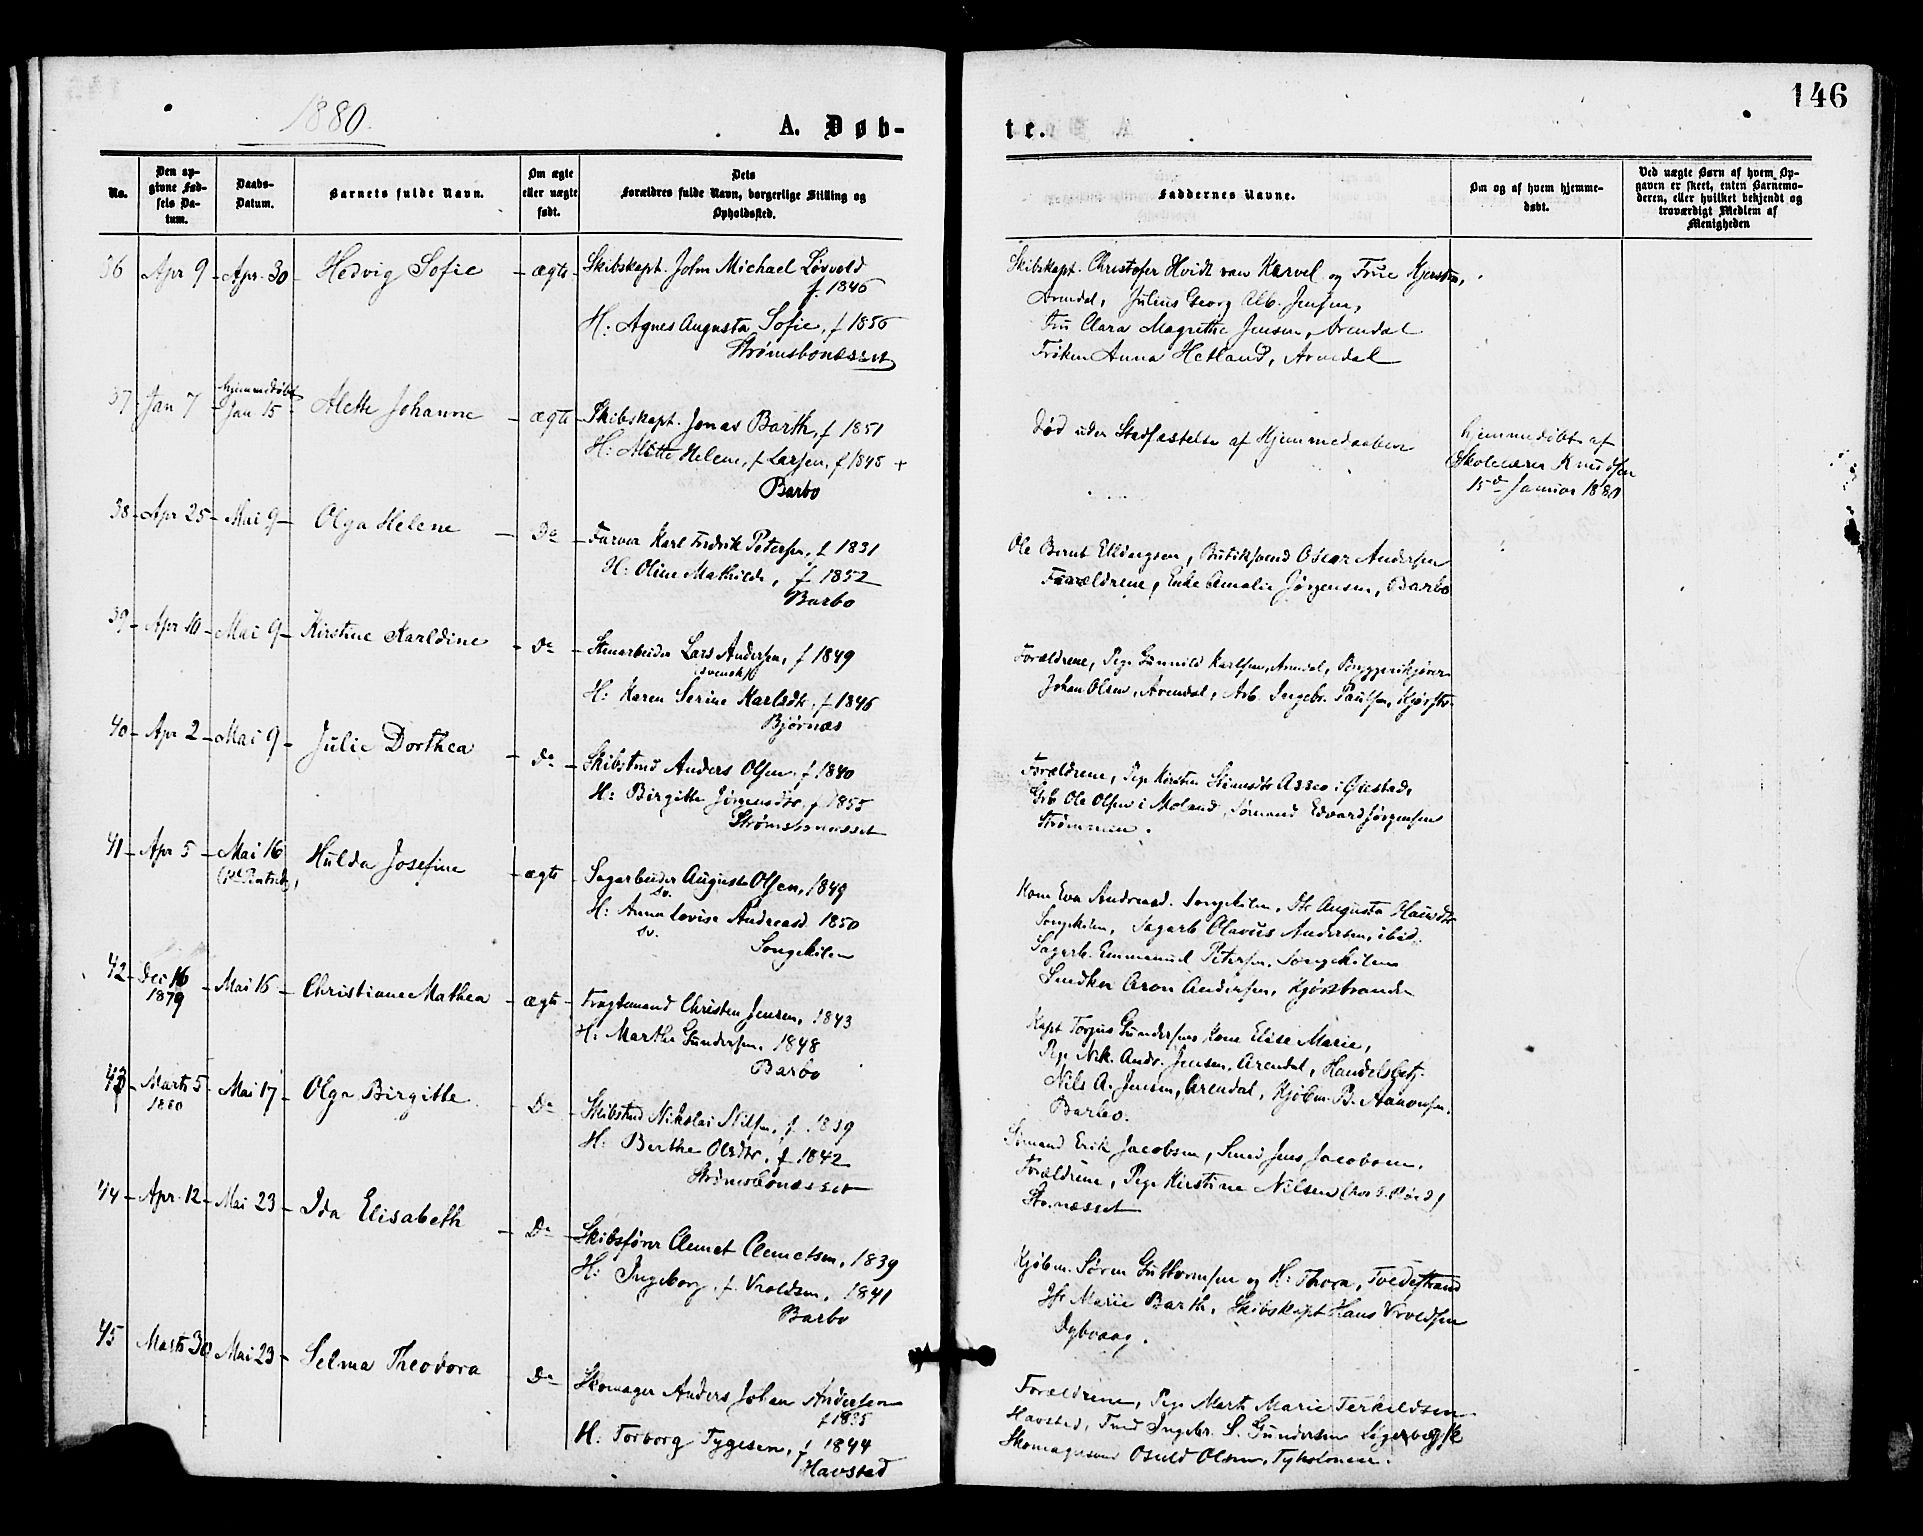 146
1880.
A. Døb-
te.
No.
Den op-
givne Fød-
sels Da-
tum.
Daabs-
Datum.
Barnets fulde Navn.
Om ægte
eller uægte
født.
Dets
Forældres fulde Navn, borgerlige Stilling og
Opholdssted.
Faddernes Navne.
Om og af hvem hjemme-
døbt.
Ved uægte Børn af hvem Op-
gaven er skeet, enten Barnemo-
deren, eller hvilket bekjendt og
troværdigt Medlem af
Menigheden
36 Apr 9 - Apr. 30 - Hedvig Sofie - ægte - Skibskapt. John Michael Løvold
f. 1846
H: Agnes Augusta Sofie, f 1856
Strømsbonesset
Skibskapt. Christofer Hvidt van Karvel og Frue Kjersten,
Arendal, Julius Georg Alb. Jensen,
Fru Clara Magrethe Jensen, Arendal
Frøken Anna Hetland, Arendal
37 Jan 7 - hjemmedøbt
Jan 15 - Alette Johanne - ægte - Skibskapt. Jonas Barth, f 1851
H: Alette Helene, f Larsen, f 1848 +
Barbo
Død uden Stadfæstelse af Hjemmedaaben
hjemmedøbt af
Skolelærer Knudsen
15de Januar 1880
38 - Apr 25 - Mai 9 - Olga Helene - Do - Farver Karl Fredrik Petersen, f 1831
H: Oline Mathilde, f 1852
Barbo
Ole Bernt Ellingsen, Butiksvend Oscar Andersen
Forældrene, Enke Amalie Jørgensen, Barbo
39 - Apr 10 - Mai 9 - Kirstine Karldine - Do - Stenarbeider Lars Andersen, f 1849
(svensk)
H: Karen Serine Karlsdtr, f 1846
Bjørnæs
Forældrene, Pige Gunnild Karlsen, Arendal, Bryggerikjører
Johan Olsen, Arendal, Arb. Ingebr. Paulsen,
40 - Apr 2 - Mai 9 - Julie Dorthea - Do - Skibstmd Anders Olsen, f 1840
H: Birgitte Jørgensdtr, f 1855
Strømsbonesset
Forældrene, Pige Kirsten i Øiestad,
Ole Olsen i Moland, Sømand Edvard Jørgensen
Strømmen.
41 - Apr 5 - Mai 16 - Hulda Josefine - ægte - Sagarbeider August Olsen, 1849
sv.
H: Anna Lovise Andreasd. 1850
sv.
Songekilen
Kone Eva Andreasd. Songekilen, Augusta
Songekilen, Sagarb Olavus Andersen, ibid.
Sagarb. Emmanuel Petersen, Songekilen
Snedker Aron Andersen, Kjørsbranden
42 - Dec 16
1879 - Mai 16 - Christiane Mathea - ægte - Fragtemand Christen Jensen, 1843
H: Marthe Gundersen, 1848
Barbo
Kapt Torjus Gundersens Kone Elise Marie,
Pige Nik. Andr. Jensen, Arendal, Handelsbetj.
Nils A. Jensen, Arendal, Kjøbm. B. Aanonsen,
Barbo.
43 - Marts 5
1880 - Mai 17 - Olga Birgitte - Do - Skibstmd Nikolai Nilsen, f. 1839
H: Berthe Olsdtr, f 1842
Strømsbonesset
Sømand Erik Jacobsen, Smed Jens Jacobsen,
Forældrene, Pige Kirstine Nilsen
Str.nesset
44 - Apr. 12 - Mai 23 - Ida Elisabeth - Do - Skibsfører Clemet Clemetsen, 1839
H: Ingeborg, f. Vroldsen, 1841
Barbo
Kjøbm. Søren Guttormsen og H: Thora, Tvedestrand
Jfr Marie Barth, Skibskapt Hans Vroldsen
Dybvaag.
45 Marts 30 Mai 23 - Selma Theodora - Do - Skomager Anders Johan Andersen
f 1835
H: Torborg Tygesen, f 1844
Havsted
Forældrene, Pige Marte Marie Terkildsen
Havsted, Tmd Ingebr. S. Gundersen
Skomagersvend Osuld Olsen, Tyholmen.